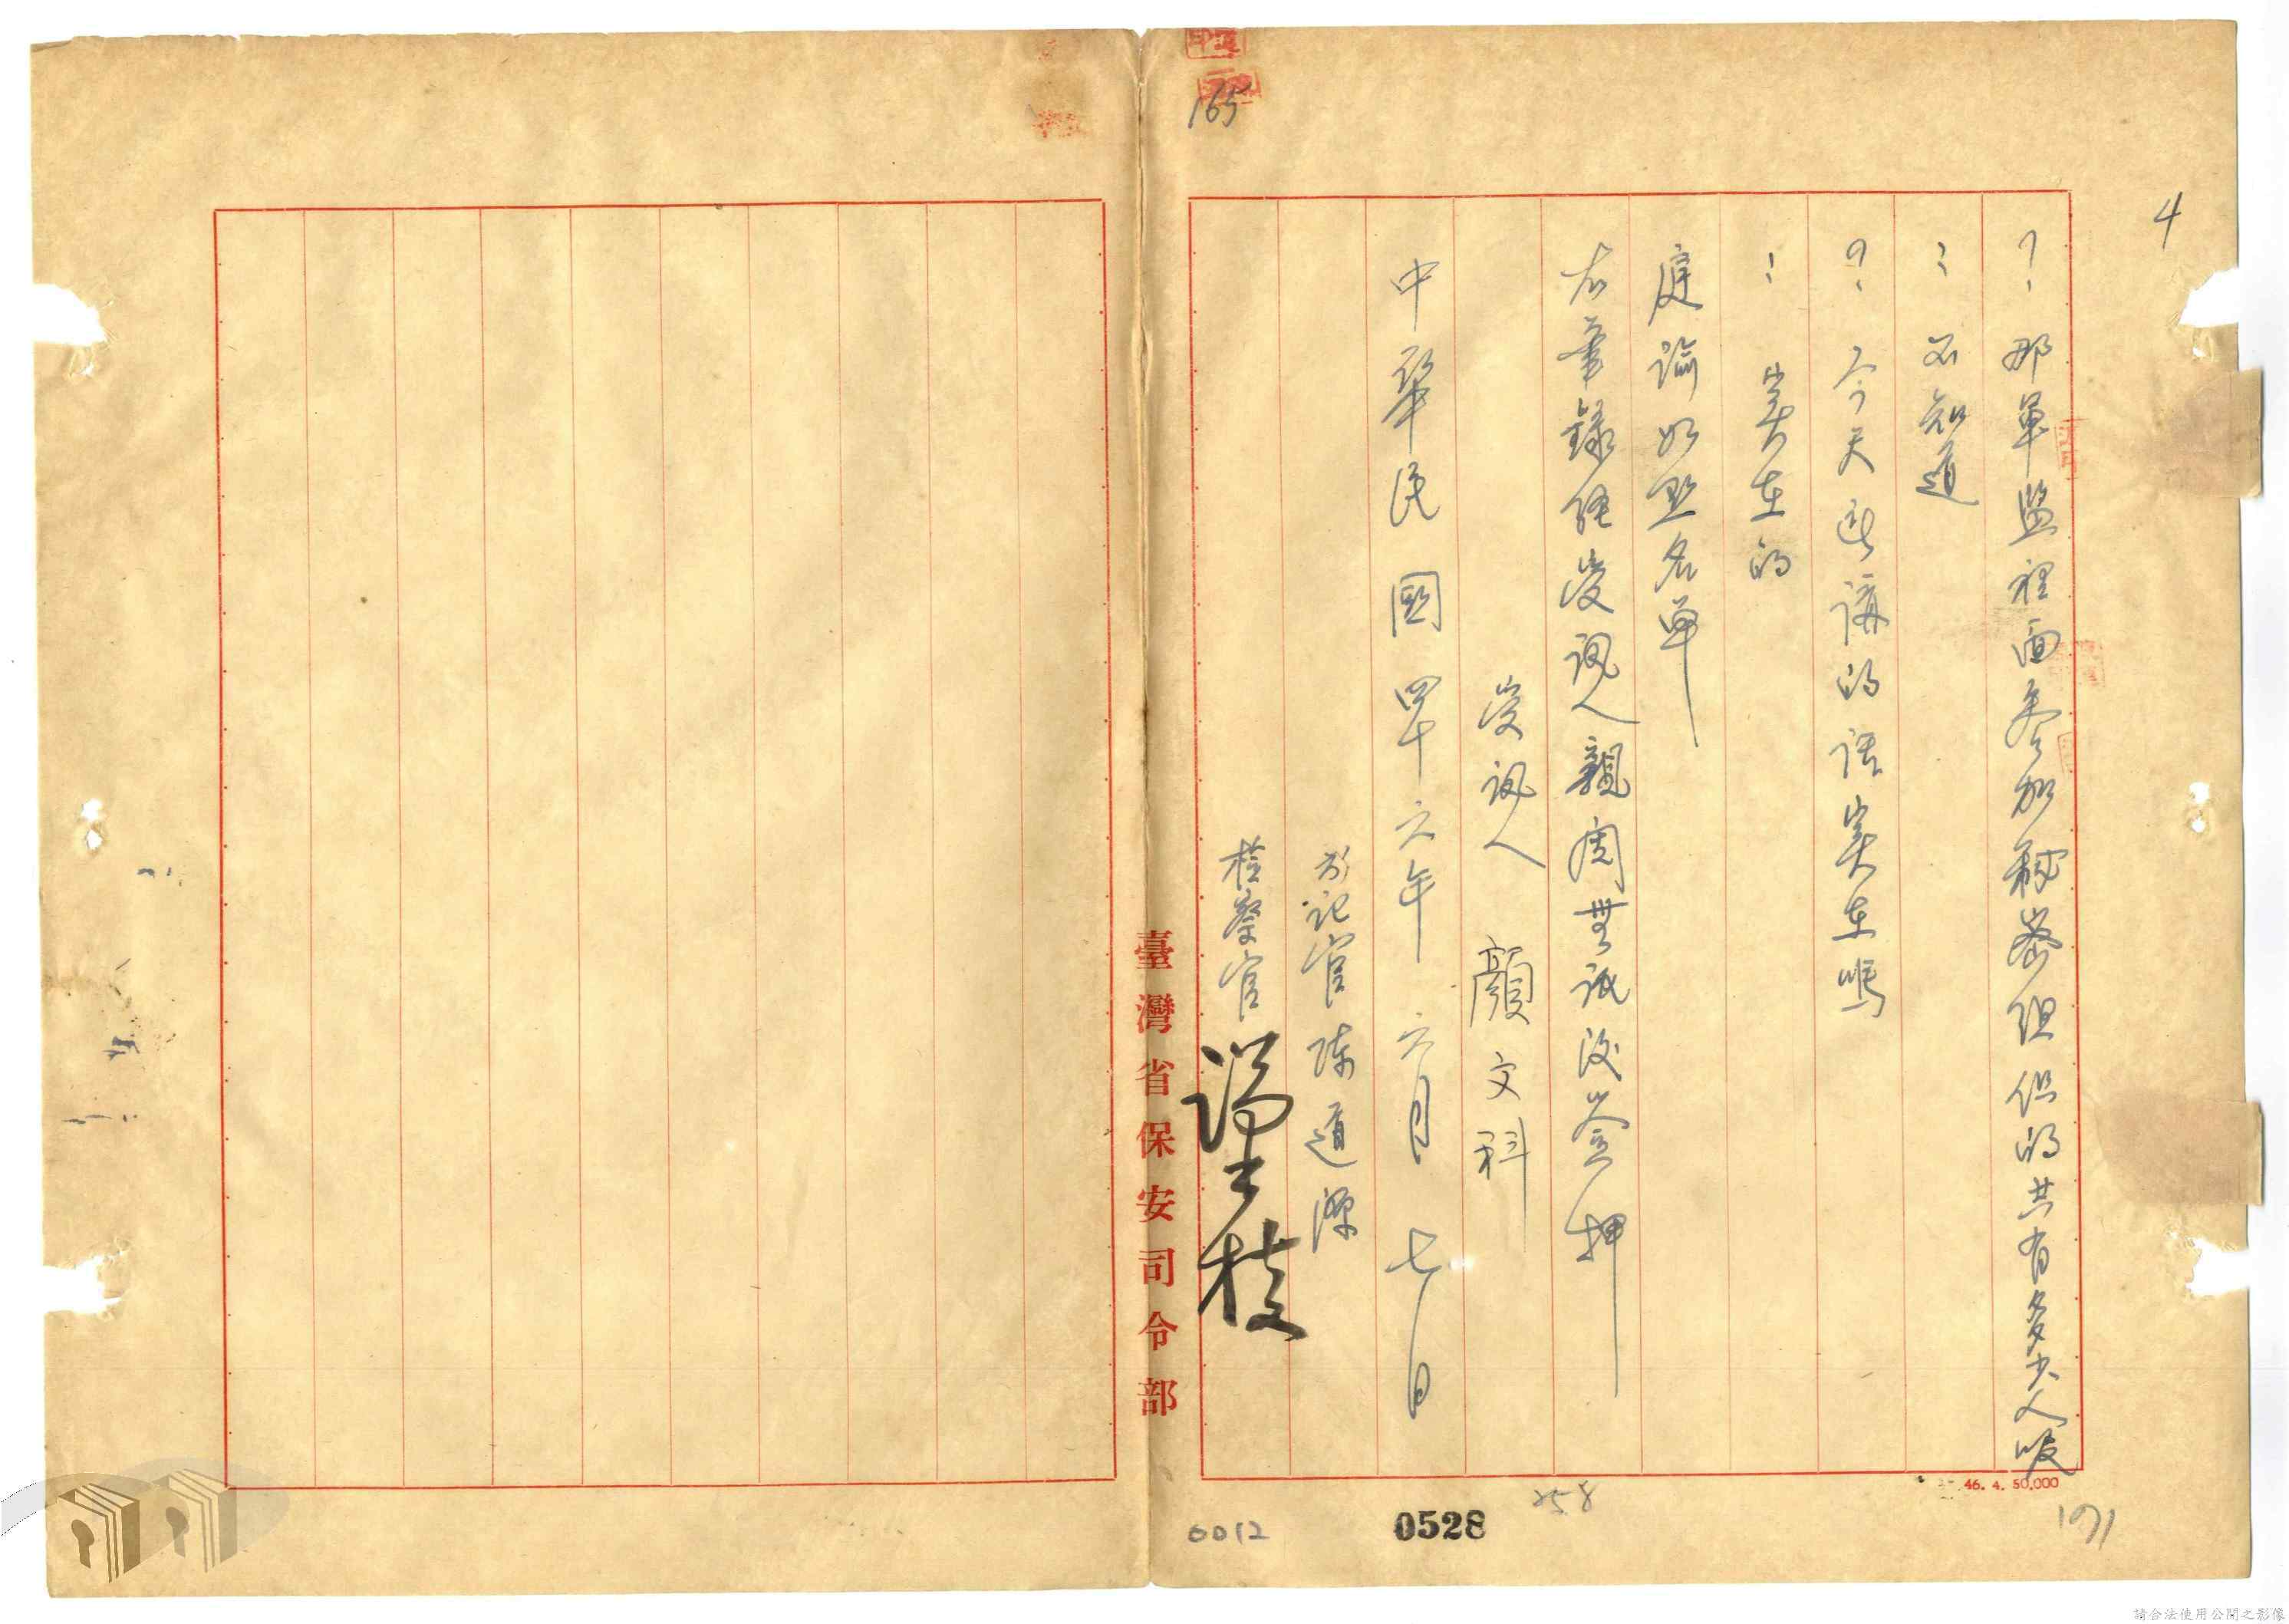 4
？：那軍監裡面參加秘密組織的共有多少人呢
：不知道
？：今天所講的話實在嗎
：實在的
庭諭如點名單
右筆錄經受訊人親閱無訛後簽押
受訊人 顏文科
中華民國四十六年六月七日
書記官陳道源
檢察官
165
臺灣省保安司令部
46. 4. 50,000
171
258
0528
0012
請合法使用公開之影像